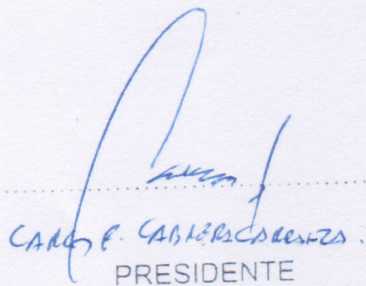 CARLOS E. CABRERA CARRANZA.
PRESIDENTE